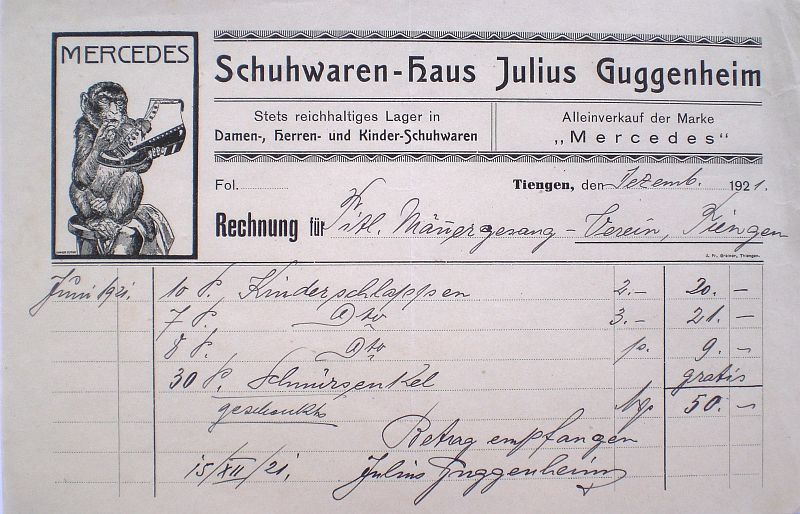 MERCEDES
Schuhwaren-Haus Julius Guggenheim
Stets reichhaltiges Lager in
Damen-, Herren- und Kinder-Schuhwaren
Alleinverkauf der Marke
„Mercedes"
Fol.
Tiengen, den Dezemb. 1921.
Rechnung für Titl. Männergesang-Verein, Tiengen
J. Fr., Tiengen.
Juni 1921. 10 P. Kinderschlappsen 2.- 20.-
7 P. Dto 3.- 21.-
8 P. Dto 9.-
30 P. Schnürsenkel gratis
geschenkt 50.-
Betrag empfangen
15/XII/21. Julius Guggenheim